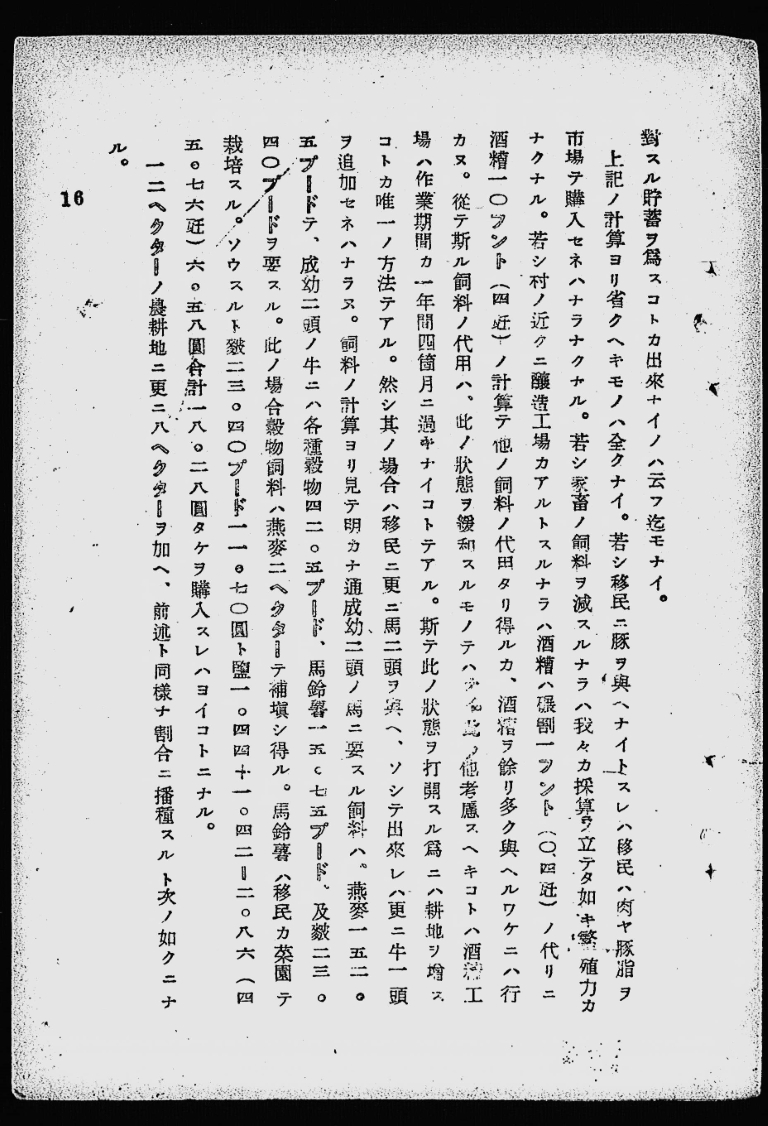 對スル貯蓄ヲ爲スコトカ出來ナイノハ云フ迄モナイ。
上記ノ計算ヨリ省クヘキモノハ全クナイ。若シ移民ニ豚ヲ與ヘナイトスレハ移民ハ肉ヤ豚脂ヲ
市場テ購入セネハナラナクナル。若シ家畜ノ飼料ヲ減スルナラハ我々カ採算ヲ立テタ如キ繁殖力カ
ナクナル。若シ村ノ近クニ釀造工場カアルトスルナラハ酒糟ハ碾割一フント(〇、四瓩)ノ代リニ
酒糟一〇フント(四瓩)ノ計算テ他ノ飼料ノ代用タリ得ルカ、酒糟ヲ餘リ多ク與ヘルワケニハ行
カヌ。從テ斯ル飼料ノ代用ハ、此ノ狀態ヲ緩和スルモノテハ他考慮スヘキコトハ酒糟工
場ハ作業期間カ一年間四箇月ニ過キナイコトテアル。斯テ此ノ狀態ヲ打開スル爲ニハ耕地ヲ增ス
コトカ唯一ノ方法テアル。然シ其ノ場合ハ移民ニ更ニ馬二頭ヲ與ヘ、ソシテ出來レハ更ニ牛一頭
ヲ追加セネハナラヌ。飼料ノ計算ヨリ見テ明カナ通成幼二頭ノ馬ニ要スル飼料ハ。燕麥一五二。
五プードテ、成幼二頭ノ牛ニハ各種穀物四二。五プード、馬鈴薯一五。七五プード、及麩二三。
四〇プードヲ要スル。此ノ場合穀物飼料ハ燕麥二ヘクターテ補塡シ得ル。馬鈴薯ハ移民カ菜園テ
栽培スル。ソウスルト麩二三。四〇プード一一。七〇圓ト鹽一。四四十一。四二ー二。八六(四
五。七六瓩)六。五八圓合計一八。二八圓タケヲ購入スレハヨイコトニナル。
一二ヘクターノ農耕地ニ更ニ八ヘクターヲ加ヘ、前述ト同樣ナ割合ニ播種スルト次ノ如クニナ
ル。
16